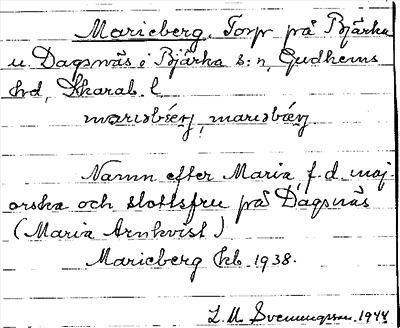 Marieberg. Torp på Bjärka
u. Dagsnäs i Bjärka s:n, Gudhems
hd, Skarab. l.
Namn efter Maria, f. d. maj-
orska och slottsfru på Dagsnäs
(Maria Arnkvist)
Marieberg kb 1938.
L. M. Svenungsson 1944